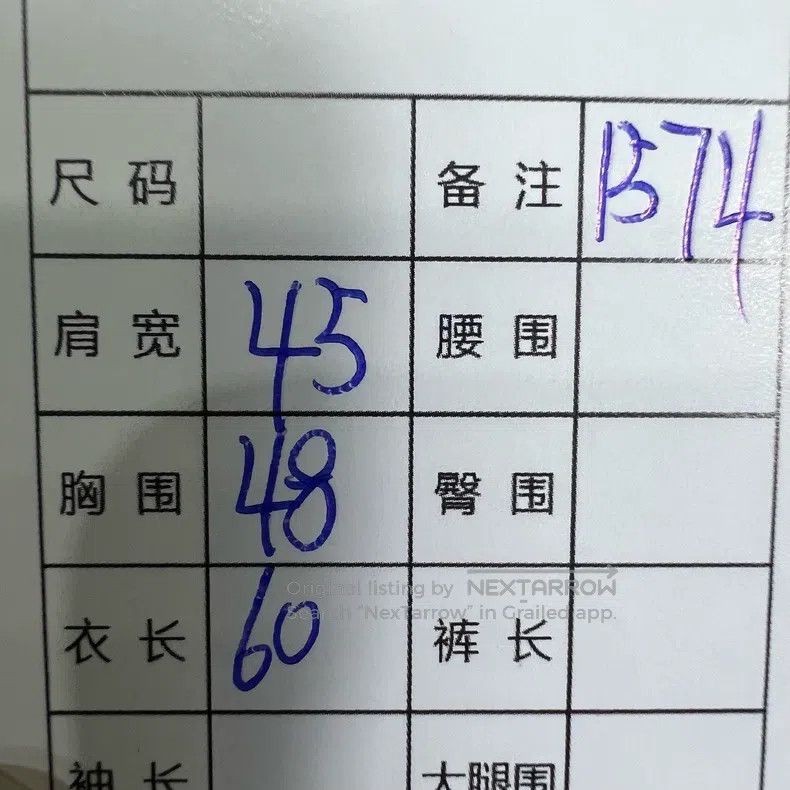 尺码 备注 1574
肩宽 45 腰围
胸围 48 臀围
Original listing by NEXTARROW
Search "NexTarrow" in Grailed app.
衣长 60 裤长
袖长 大腿围